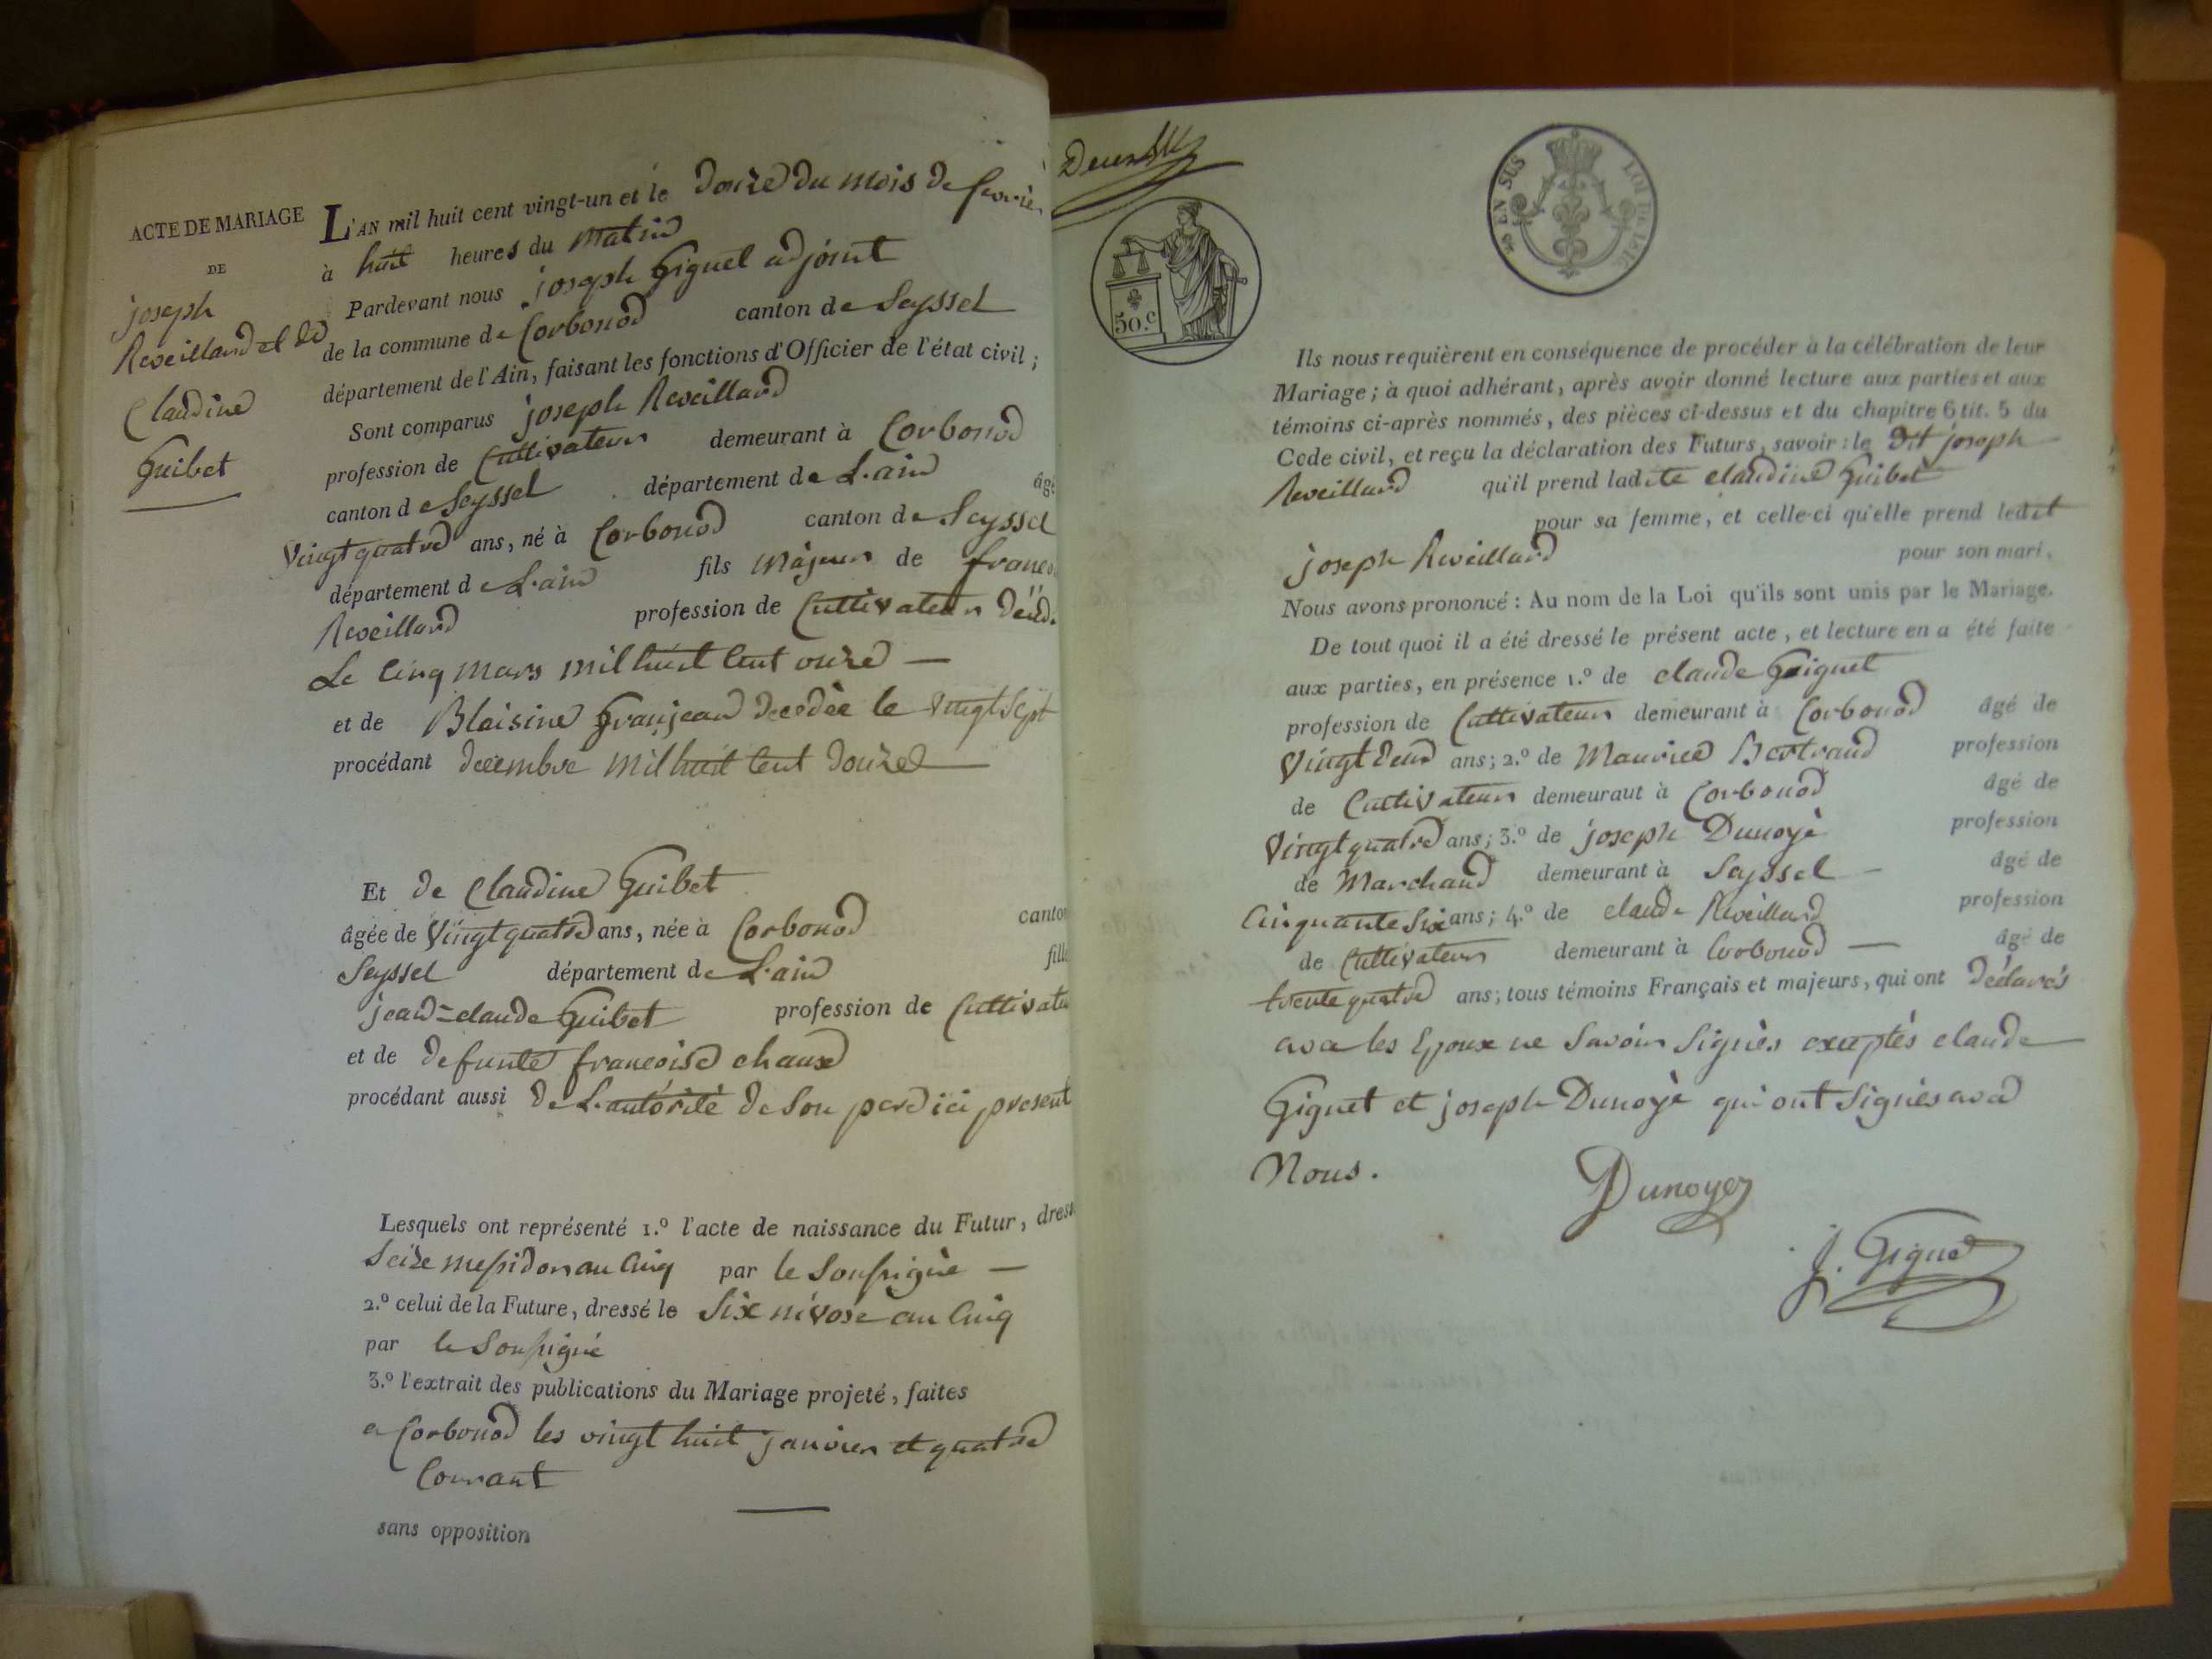 ACTE DE MARIAGE
DE
joseph
Reveillard et de
Claudine
Guibet
L'AN mil huit cent vingt-un et le douze du mois de fevrier
à huit heures du matin
Pardevant nous joseph Giguet adjoint
de la commune de Corbonod canton de Seyssel
département de l'Ain, faisant les fonctions d'Officier de l'état civil ;
Sont comparus joseph Reveillard
profession de Cultivateur demeurant à Corbonod
canton de Seyssel département de L'ain âgé
Vingt quatre ans, né à Corbonod canton de Seyssel
département de L'ain fils majeur de
Reveillard profession de Cultivateur
Le Cinq mars mil huit Cent onze —
et de Blaisine Granjean decedèe le vingt Sept
procédant decembre mil huit Cent douze
Et de Claudine Guibet
âgée de Vingt quatre ans, née à Corbonod canton
Seyssel département de L'ain fille
jean=claude Guibet profession de Cultivateu
et de defunte francoise chaux
procédant aussi de L'autorité de Son pere ici present
Lesquels ont représenté 1.º l'acte de naissance du Futur, dress
Seize messidor an Cinq par le Soussignè —
2.º celui de la Future, dressé le Six nivose an Cinq
par le Soussigné
3.º l'extrait des publications du Mariage projeté, faites
a Corbonod les vingt huit janvier et quatre
Courant
sans opposition
50.c
EN SUS LOI DE 1816
Ils nous requièrent en conséquence de procéder à la célébration de leur
Mariage ; à quoi adhérant, après avoir donné lecture aux parties et aux
témoins ci-après nommés, des pièces ci-dessus et du chapitre 6 tit. 5 du
Code civil, et reçu la déclaration des Futurs, savoir : le dit joseph
Reveillard qu'il prend ladite claudine Guibet
pour sa femme, et celle-ci qu'elle prend ledit
joseph Reveillard pour son mari.
Nous avons prononcé : Au nom de la Loi qu'ils sont unis par le Mariage.
De tout quoi il a été dressé le présent acte, et lecture en a été faite
aux parties, en présence 1.º de claude Guiguet
profession de Cultivateur demeurant à Corbonod âgé de
Vingt deux ans ; 2.º de Maurice Bertrand profession
de Cultivateur demeuraut à Corbonod âgé de
Vingt quatre ans ; 3.º de joseph Dunoyè profession
de Marchand demeurant à Seyssel — âgé de
Cinquante Six ans ; 4.º de claude Reveillard profession
de Cultivateur demeurant à Corbonod — âgé de
trente quatre ans ; tous témoins Français et majeurs, qui ont déclarés
avec les Epoux ne Savoir Signèr exceptès claude
Giguet et joseph Dunoyè qui ont Signès avec
Nous.
Dunoyer
J. Giguet